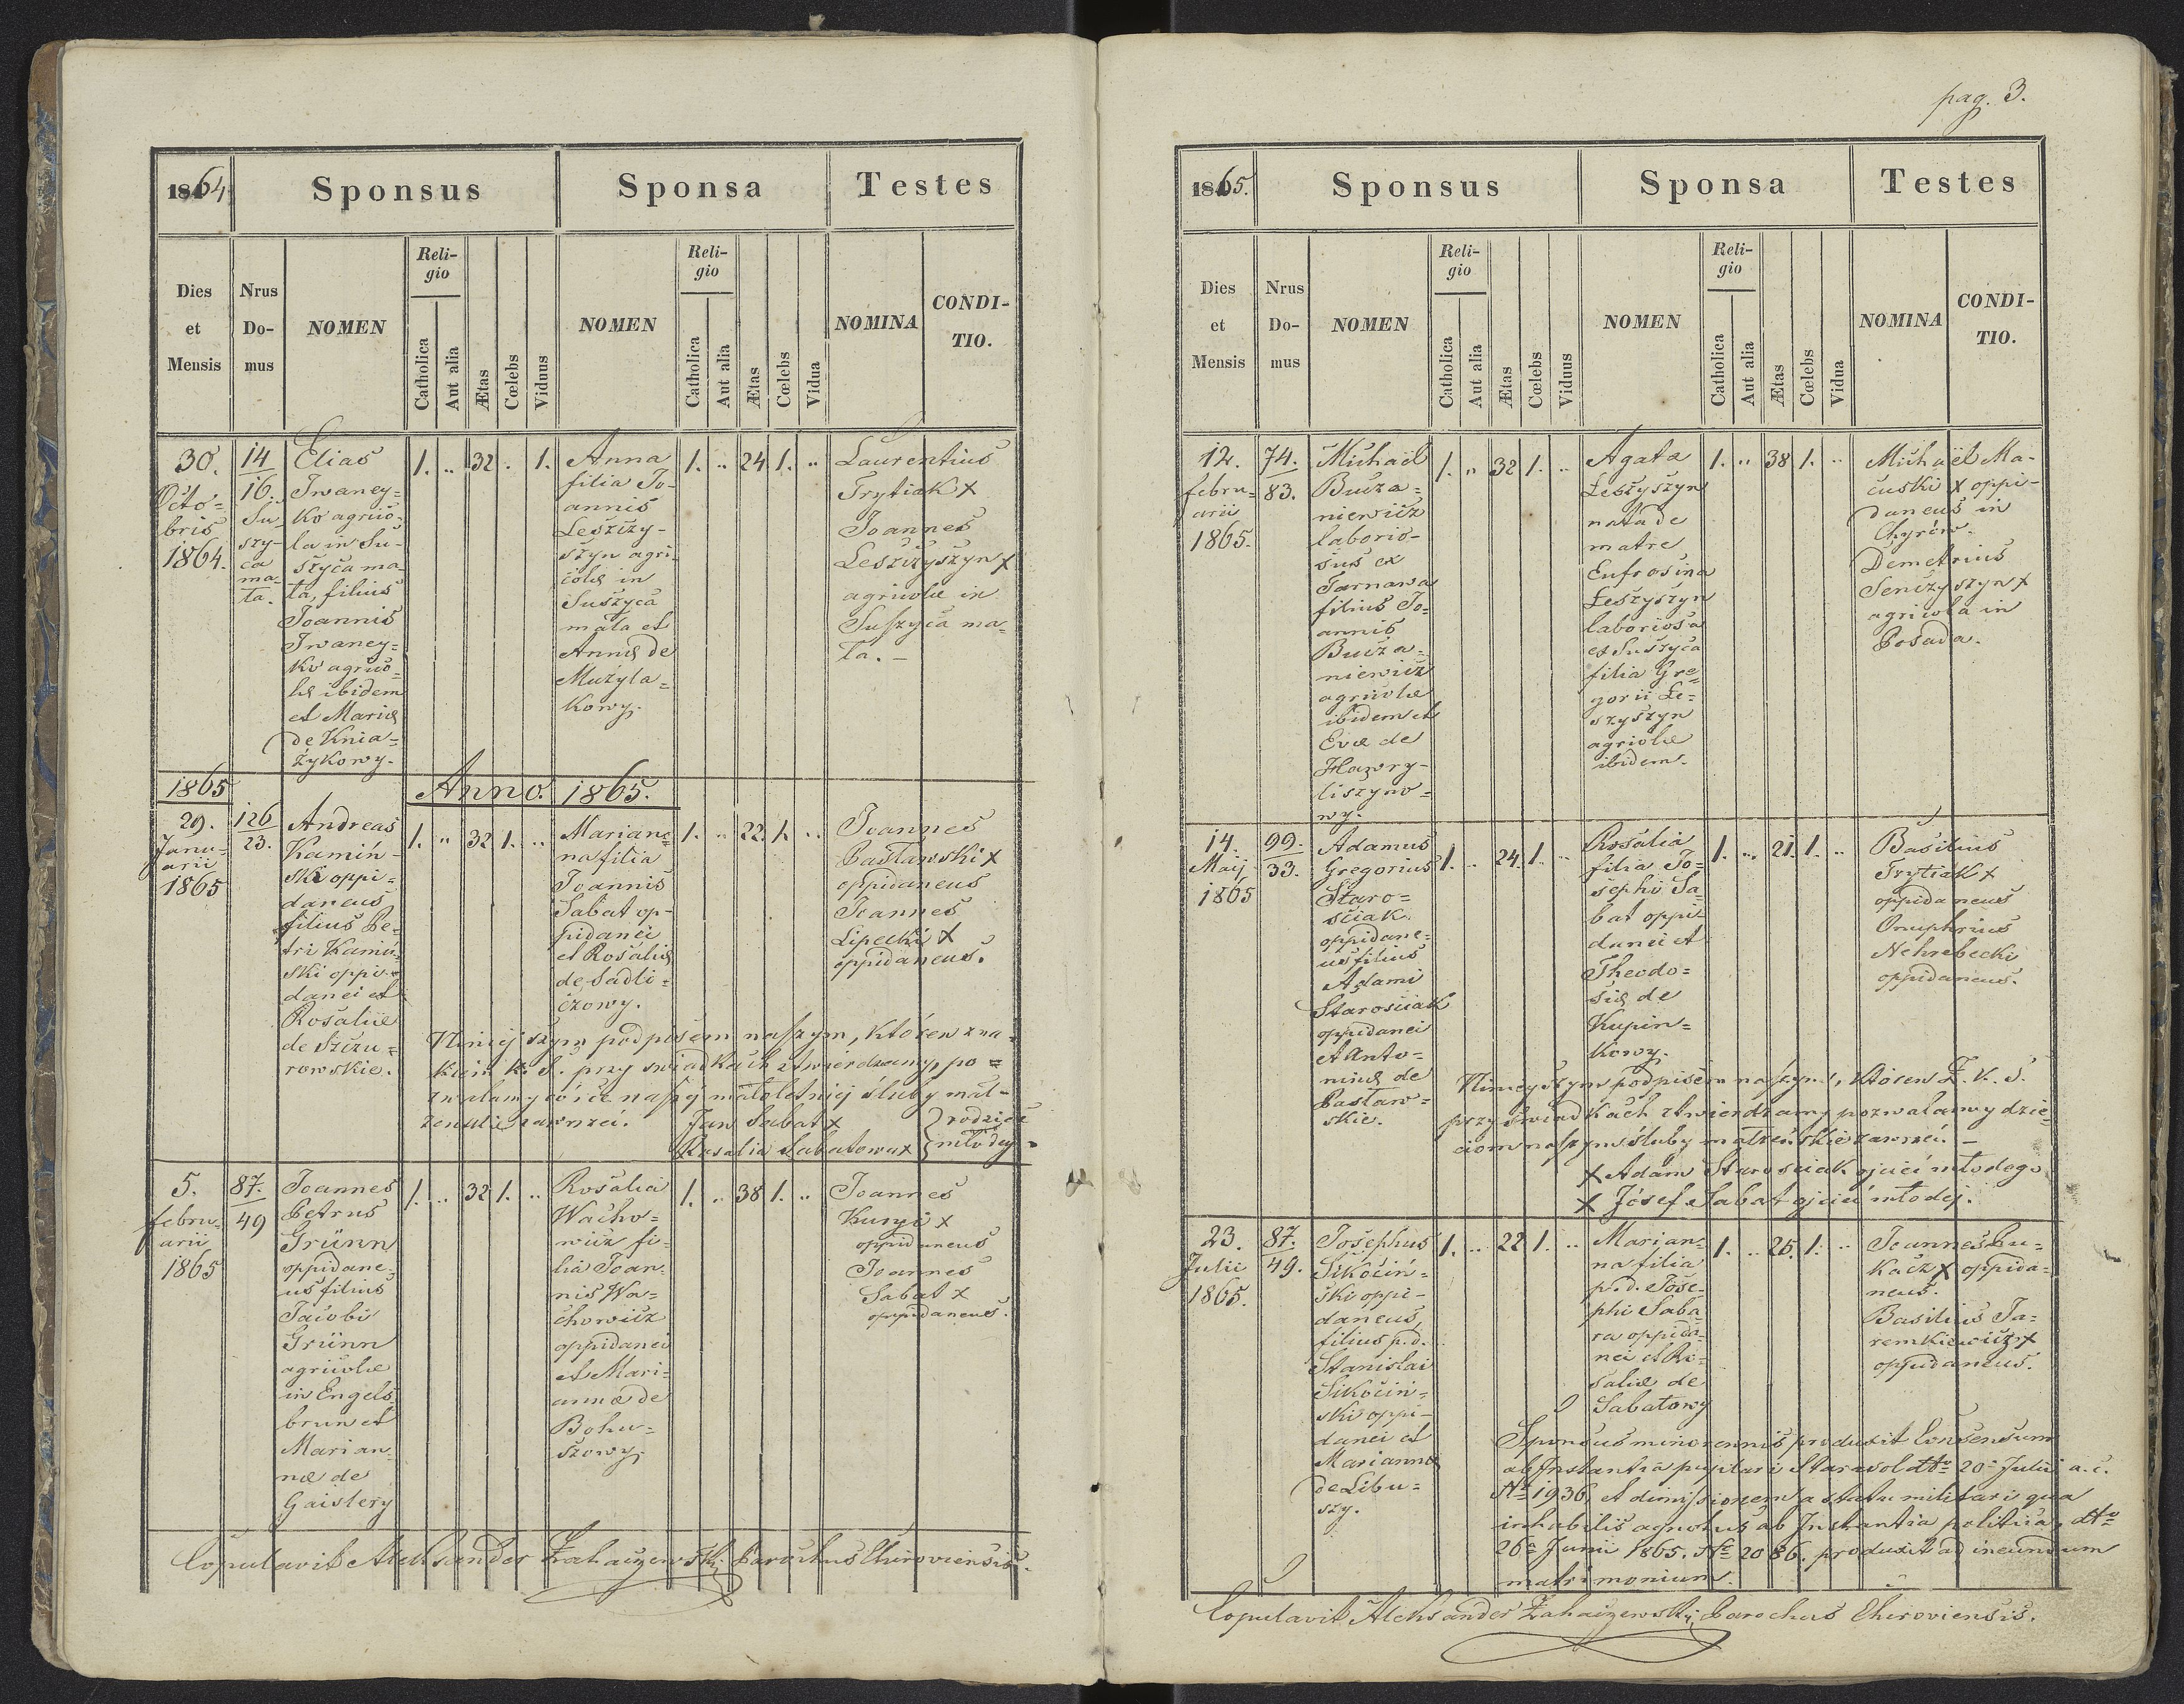 1864
Sponsus
Sponsa
Testes
Dies
et
Mensis
Nrus
Do-
mus
NOMEN
Reli-
gio
Catholica
Aut alia
Ætas
Cœlebs
Viduus
NOMEN
Reli-
gio
Catholica
Aut alia
Ætas
Cœlebs
Vidua
NOMINA
CONDI-
TIO.
30.
Octo=
bris
1864.
14
16.
Su
szy-
ca
ma-
ła.
Elias
Iwaney=
ko agrico-
la in Su-
szyca ma-
ła, filius
Joannis
Iwaney=
ko agrico=
læ ibidem
et Mariæ
de Knia=
żykowy.
1. .. 32 . 1.
Anna
filia Jo-
annis
Leszczy-
szyn agri-
colæ in
Suszyca
mała et
Annæ de
Mużyla=
kowy.
1. .. 24 1. ..
Laurentius
Trytiak x
Joannes
Leszczyszyn x
agricolæ in
Suszyca ma=
ła. –
1865
Anno. 1865.
29.
Janu-
arii
1865
126
23.
Andreas
Kamiń-
ski oppi=
daneus
filius Pe-
tri Kamiń-
ski oppi-
danei et
Rosaliæ
de Szczu=
rowskie.
1. .. 32 1. ..
Marian=
na filia
Joannis
Sabat op-
pidanei
et Rosaliæ
de Sadli=
czowy.
1. .. 22. 1. ..
Joannes
Pasławski x
oppidaneus
Joannes
Lipecki x
oppidaneus.
Niniejszym podpisem naszym, któren zna-
kiem k. S. przy swiadkach ztwierdzamy, po=
zwalamy córce naszej małoletniej śluby mał-
żenskie zawrzeć. Jan Sabat x rodzice
Rosalia Sabatowa x młodey.
5.
febru-
arii
1865
87.
49
Joannes
Petrus
Grünn
oppidane-
us filius
Jacobi
Grünn
agricolæ
in Engels
brun et
Marian-
næ de
Gaislery
1. .. 32 1. ..
Rosalia
Wacho=
wicz fi-
lia Joan-
nis Wa=
chowicz
oppidanei
et Mari-
annæ de
Bohu=
szowy.
1. .. 38 1. ..
Joannes
x
oppidaneus
Joannes
Sabat x
oppidaneus.
Copulavit Alexsander Zahaizewski, Parochus Chiroviensis.
pag. 3.
1865.
Sponsus
Sponsa
Testes
Dies
et
Mensis
Nrus
Do-
mus
NOMEN
Reli-
gio
Catholica
Aut alia
Ætas
Cœlebs
Viduus
NOMEN
Reli-
gio
Catholica
Aut alia
Ætas
Cœlebs
Vidua
NOMINA
CONDI-
TIO.
12.
febru=
arii
1865.
74.
83.
Michaël
Bucza=
niewicz
laborio-
sus ex
Tarnawa
filius Jo=
annis
Bucza=
niewicz
agricolæ
ibidem et
Evæ de
Hawry-
liszyno=
wy.
1. .. 32 1. ..
Agata
Leszyszyn
nata de
matre
Eufrosina
Leszyszyn
laboriosa
ex Suszyca
filia Gre=
gorii Le=
szyszyn
agricolæ
ibidem.
1. .. 38 1. ..
Michaël Ma-
cuski x oppi-
daneus in
Chyrów.
Demetrius
Senczyszyn x
agricola in
Posada.
14.
Maij
1865
99.
33.
Adamus
Gregorius
Staro=
sciak
oppidane=
us filius
Adami
Starosciak
oppidanei
et Anto=
niuæ de
Pasław=
skie.
1. .. 24. 1. ..
Rosalia
filia Jo=
sephi Sa=
bat oppi
danei et
Theodo=
siæ de
Kupin=
kowy.
1. .. 21. 1. ..
Basilius
Trytiak x
oppidaneus
Onuphrius
Nehrebecki
oppidaneus.
Nineyszym podpisem naszym, któren Z. k. S.
przy świadkach ztwierdzamy pozwalamy dzie=
ciom naszym śluby małżeńskie zawrzeć. –
x Adam Starosciak ojciec młodego
x Józef Sabat ojciec młodej.
23.
Julii
1865.
87.
49.
Josephus
Sikociń=
ski oppi-
daneus,
filius p.d.
Stanislai
Sikociń=
ski oppi-
danei et
Mariannæ
de Libu=
szy.
1. .. 22 1. ..
Marian=
na filia
p.d. Jose-
phi Saba
ra oppida-
nei et Ro-
saliæ de
Sabatowy
1. .. 25. 1. ..
Joannes Lu=
kacz x oppida=
neus.
Basilius Ja=
remkiewicz x
oppidaneus.
Sponsus minorennis produxit Consensum
ab Instantia pupilari Starasol dto 20 Julii a. c.
No 1936, et dimissionem a statu militari qua
inhabilis agnotus ab Instantia politica, dto
26a Junii 1865. No 2086. produxit ad ineundum
matrimonium.
Copulavit Alexsander Zahaizewski, Parochus Chiroviensis.